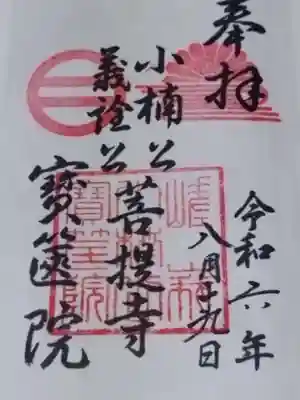 奉拝
令和六年
八月十九日
小楠公
義詮公
菩提寺
寶篋院